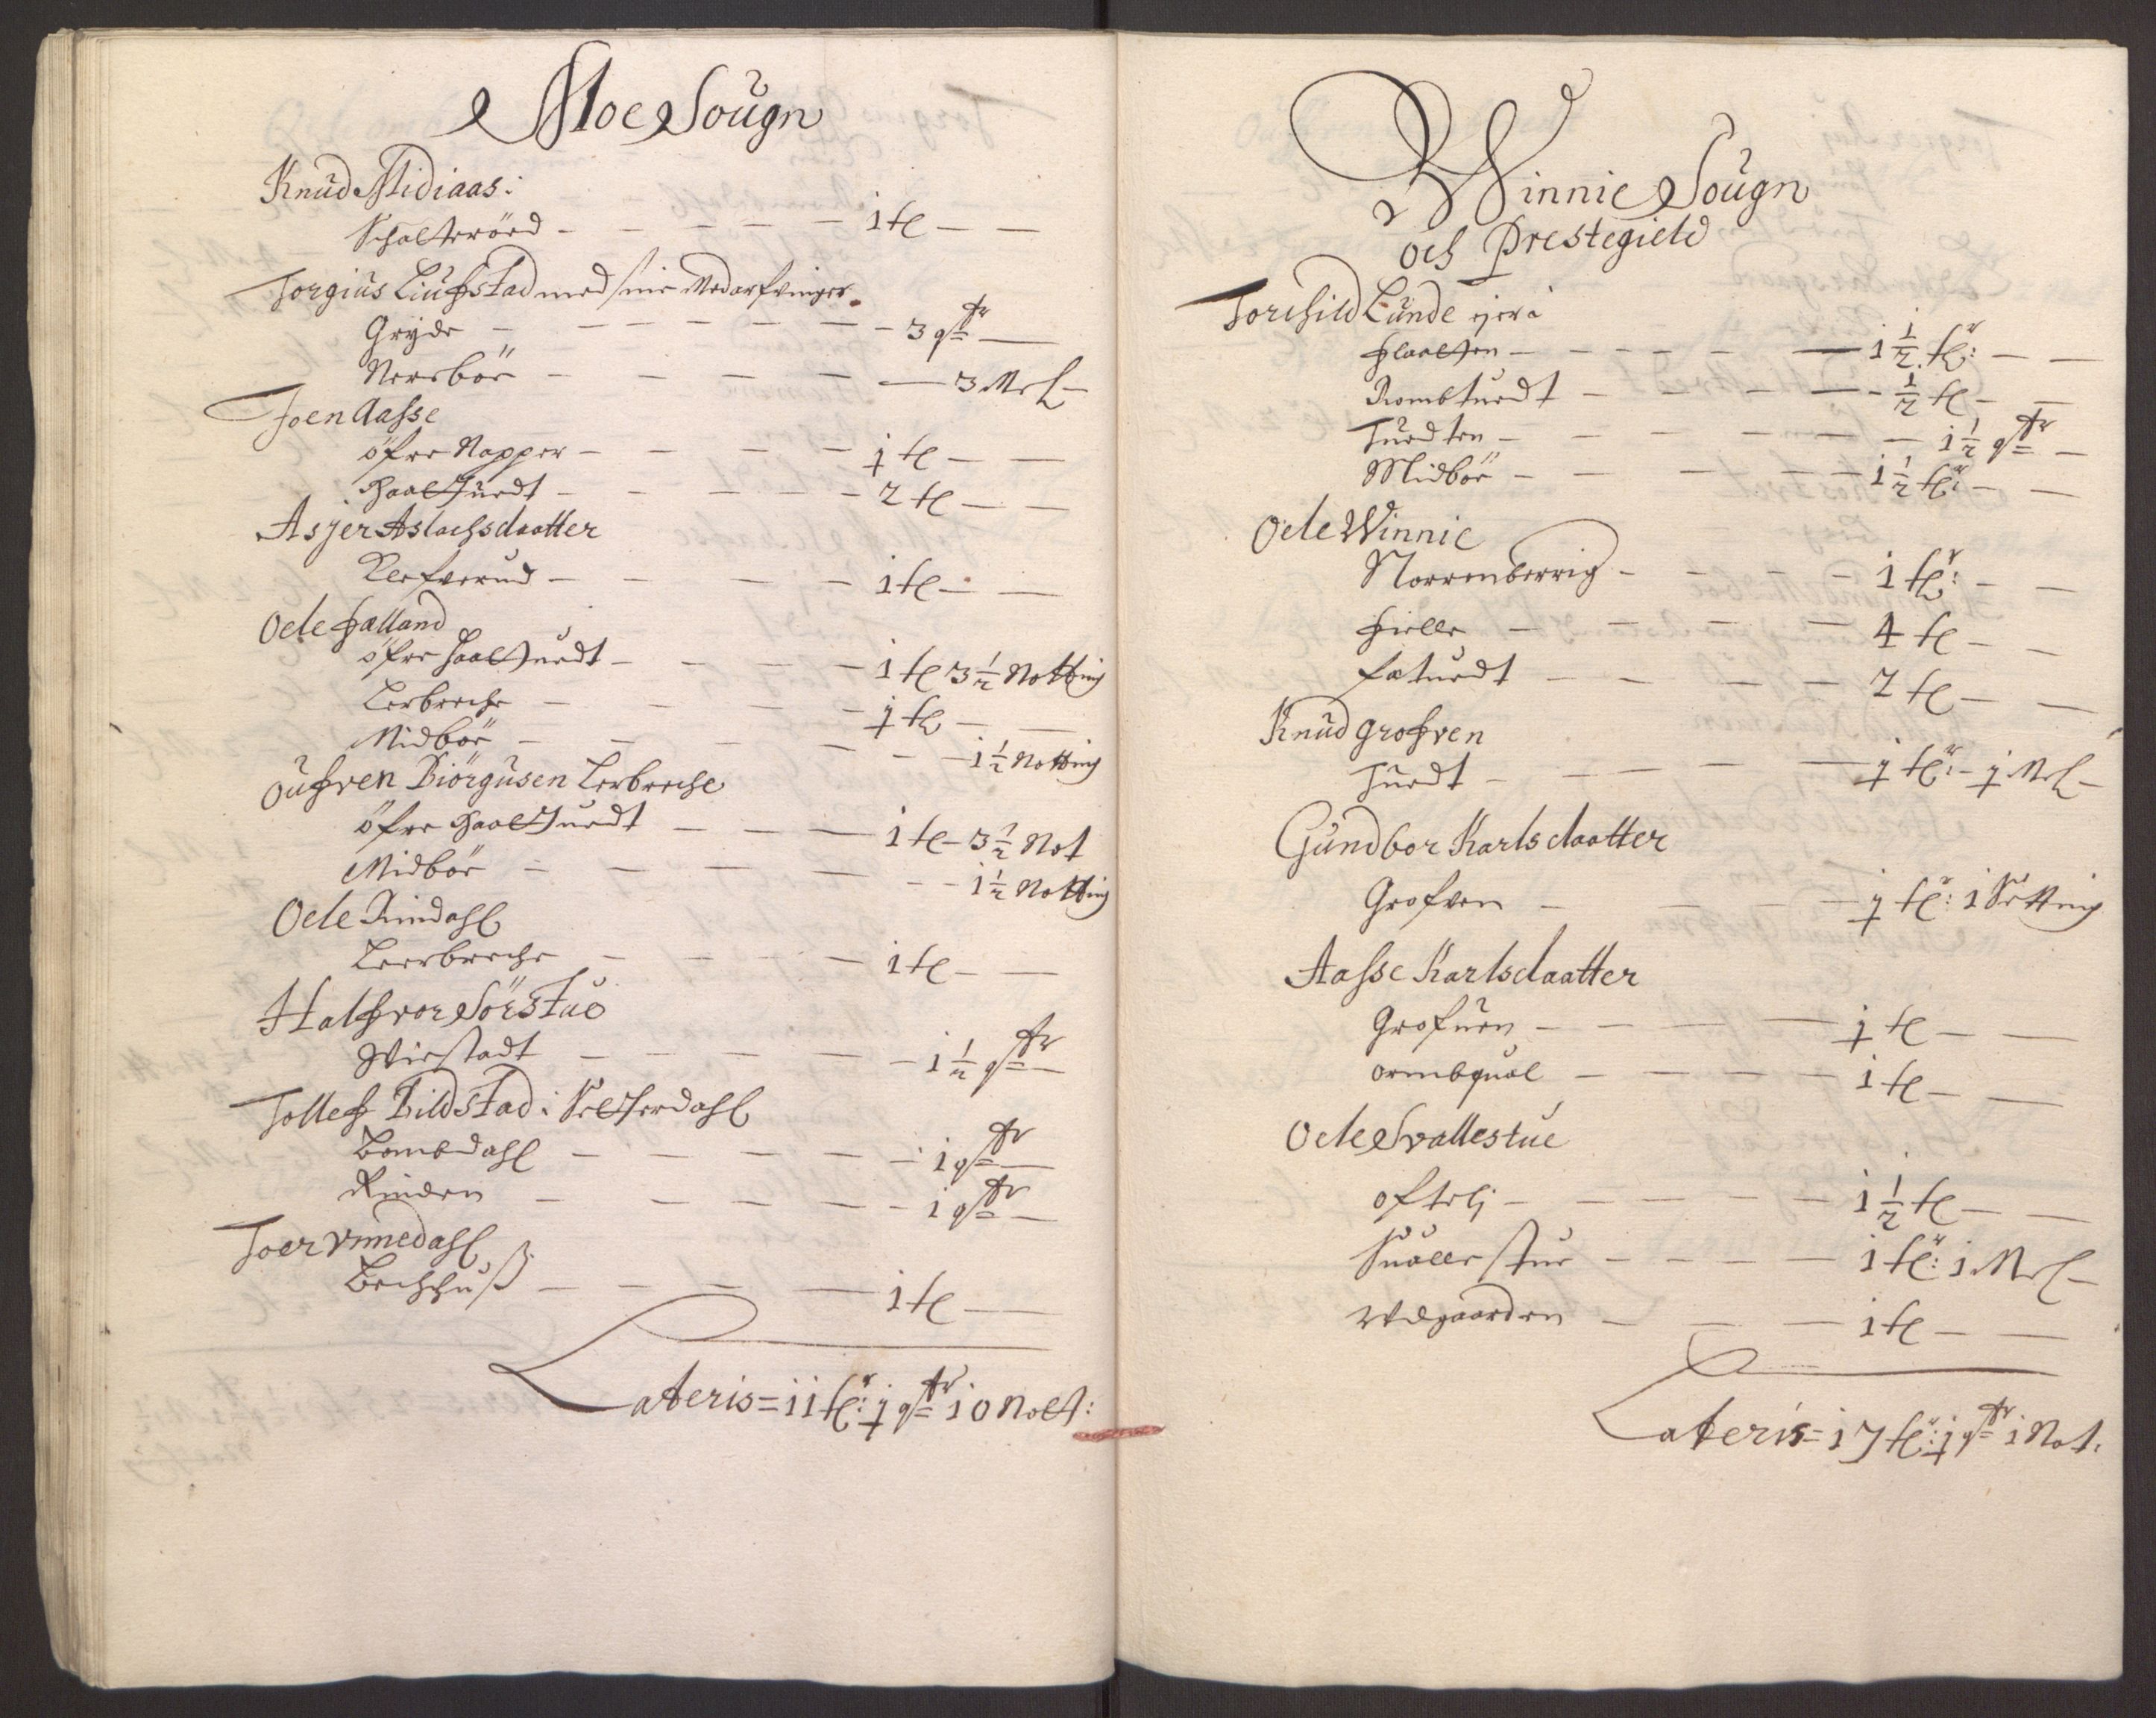 Moe Sougn
Knud Midiaas:
Schalteröed - - - - - 1 tl - -
Torgius Liufstad med sine Medarfvinger
Gryde - - - - - - 3 qtr -
Nersböe - - - - - 3 Mel -
Joen Aasse
öfre Napper - - - - 1 tl - -
Haaltuedt - - - - 2 tl - -
Asjer Aslachsdaatter
Klefverud - - - - 1 tl - -
Oele Halland
öfre Haaltuedt - - - - 1 tl 3 1/2 Notting
Lerbreche - - - - 1 tl - -
Midböe - - - - - 1 1/2 Notting
Oufven Biörgusen Lerbreche
öfre Haaltuedt - - - 1 tl - 3 1/2 Not
Midböe - - - - - - 1 1/2 Notting
Oele Rindahl
Leerbreche - - - - 1 tl - -
Halfvor Sörstue
Wiestadt - - - - - 1 1/2 qtr -
Tollef Bildstad i Setterdahl
Bombdahl - - - - - 1 qtr -
Rinden - - - - - 1 qtr -
Toer Vinnedahl
Bechhuß - - - - 1 tl -
Lateris = 11 tlr: 1 qtr 10 Nott:
Winnie Sougn
och Prestegield
Torchild Lunde ejer i
Haatten - - - - - 1 1/2 tlr: - -
Rombtuedt - - - - - 1/2 tl - -
Tuedten - - - - - - 1 1/2 qtr -
Midböe - - - - - 1 1/2 tlr: - -
Oele Winnie
Norrenberrig - - - - 1 tlr: - -
Hielle - - - - - 4 tl - -
Fatuedt - - - - 2 tl - -
Knud Grofven
Tuedt - - - - - 1 tlr: - 1 Mel -
Gundbor Karlsdaatter
Grofven - - - - 1 tlr: 1 Setting
Aasse Karlsdaatter
Grofuen - - - - 1 tl - -
Ormbqual - - - - 1 tl - -
Oele Svallestue
Oftelj - - - - - 1 1/2 tl - -
Suallestue - - - - 1 tlr: 1 Mel -
Wdgaarden - - - 1 tl - -
Lateris = 17 tlr: 1 qtr 1 Not: